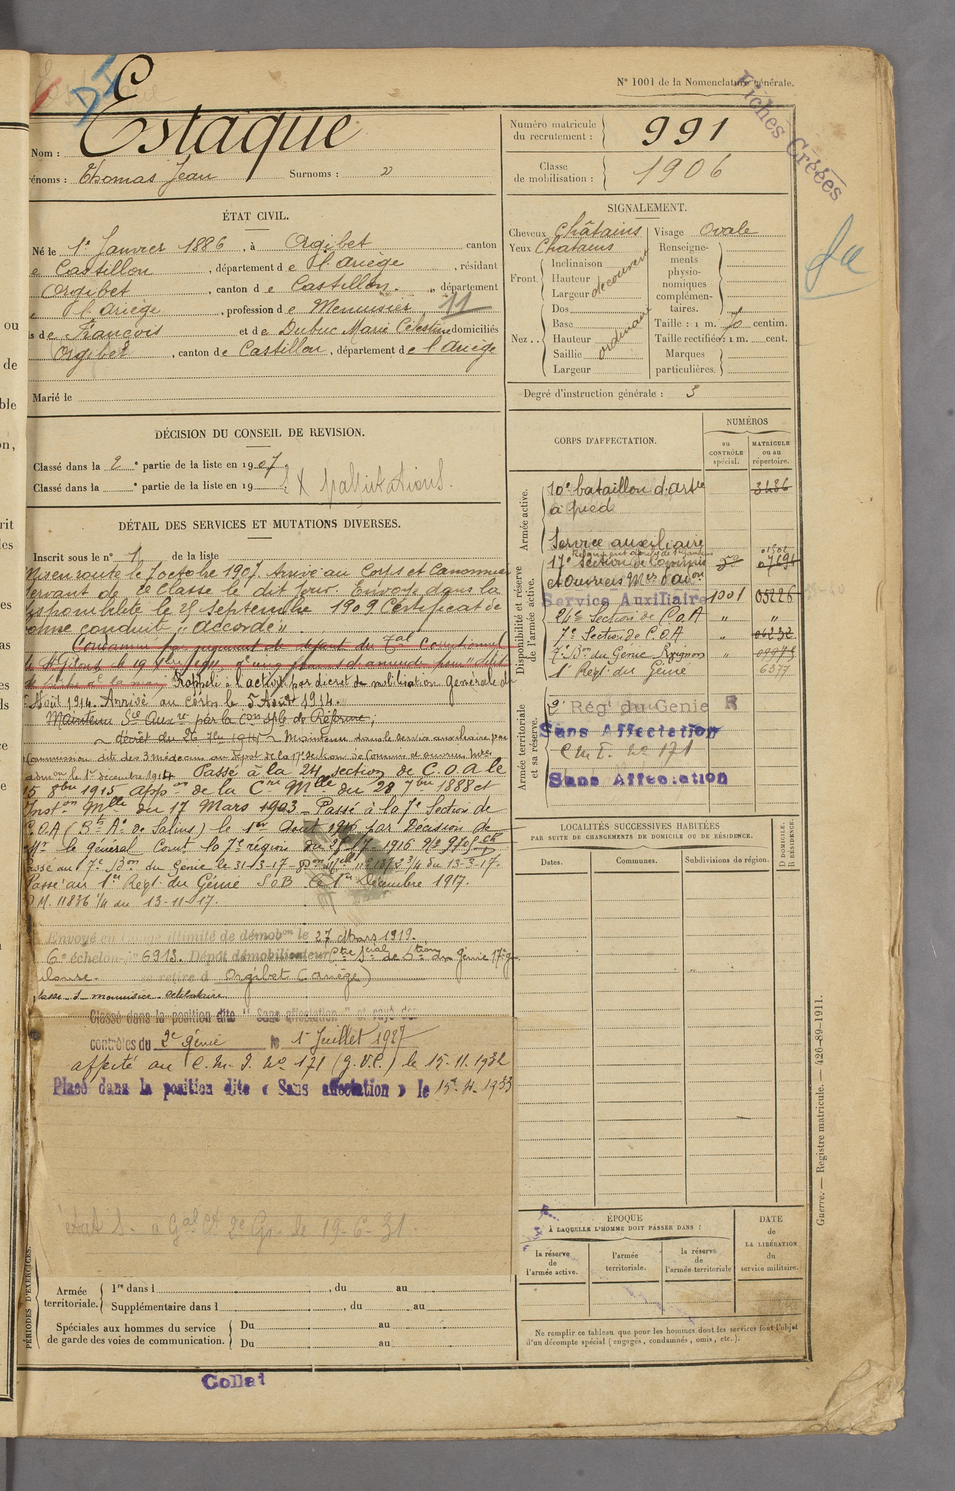 N° 1001 de la Nomenclature générale.
Fiches Créées
Nom : Estaque
Prénoms : Thomas Jean Surnoms : »
Numéro matricule du recrutement : 991
Classe de mobilisation : 1906
ÉTAT CIVIL.
Né le 1er Janvier 1886, à Orgibet, canton
de Castillon, département de l'Ariège, résidant
Orgibet, canton de Castillon, département
de l'Ariège, profession de Menuisier 11
fils de François et de Dubuc Marie Célestine domiciliés
Orgibet, canton de Castillon, département de l'Ariège
Marié le
SIGNALEMENT.
Cheveux Châtains
Yeux Châtains
Front. Inclinaison
Hauteur
Largeur découvert
Nez. Dos
Base
Hauteur
Saillie
Largeur
ordinaire
Visage Ovale
Renseignements physionomiques complémentaires.
Taille : 1 m. 70 centim.
Taille rectifiée : 1 m. cent.
Marques particulières.
Degré d'instruction générale : 3
DÉCISION DU CONSEIL DE REVISION.
Classé dans la 2e partie de la liste en 1907.
Classé dans la e partie de la liste en 19 ; X palpitations.
DÉTAIL DES SERVICES ET MUTATIONS DIVERSES.
Inscrit sous le n° 1 de la liste
Mis en route le 7 octobre 1907. Arrivé au Corps et Canonnier
servant de 2e Classe le dit jour. Envoyé dans la
disponibilité le 25 Septembre 1909 Certificat de
bonne conduite "accordé".
Condamné par jugement de défaut du Tal Correctionnel
de St Girons le 19
Rappelé à l'activité par décret de mobilisation générale du
Août 1914. Arrivé au corps le 5 Août 1914.
Maintenu Sce Auxre par la Con sple de Réforme,
décret du 26 7bre 1914 - Maintenu dans le service auxiliaire par
Commission dite des 3 médecins au Dépôt de la 17e Section de Commis et ouvriers
admon le 1er décembre 1914. Passé à la 24 section de C.O.A le
15 8bre 1915 appon de la Cre Mlle du 28 7bre 1888 et
Inston Mlle du 17 Mars 1903 - Passé à la 7e Section de
C.O.A (Bts Ae de Salins) le 1er Août 1916 par Décision de
Mr le Général Comt la 7e région du 27/7 1916
Passé au 7e Bon du Génie le 31-3-17 - 3/4 du 13-3-17.
Passé au 1er Régt du Génie S.O.B le 1er Décembre 1917.
D.M. 11836 1/4 du 13-11-17.
Envoyé en congé illimité de démobon le 27 Mars 1919.
6e échelon n° 6913. Dépôt démobilisateur Ctre Scial de Stion du Génie 17e Rg
Toulouse. se retire à Orgibet (Ariège)
Classé dans la position dite "Sans affectation" et rayé des
contrôles du 2e génie le 1er Juillet 1927
affecté au C.M.I. No 171 (G.V.C) le 15.11.1932
Placé dans la position dite « Sans affectation » le 15.4.1933
CORPS D'AFFECTATION.
NUMÉROS
au CONTRÔLE spécial.
MATRICULE ou au répertoire.
Armée active.
10e bataillon d'artie à pied 3486
Service auxiliaire
Disponibilité et réserve de l'armée active.
17e Section de Commis et Ouvriers Mres d'adon
Service Auxiliaire 1001 05226
24e Section de C.O.A " "
7e Section de C.O.A "
7e Bon du Génie Avignon "
1er Régt du Génie 6377
Armée territoriale et sa réserve.
2e Régt du Genie R
Sans Affectation
C.M.I. No 171
Sans Affectation
LOCALITÉS SUCCESSIVES HABITÉES
PAR SUITE DE CHANGEMENTS DE DOMICILE OU DE RÉSIDENCE.
Dates. Communes. Subdivisions de région.
D DOMICILE. R RÉSIDENCE.
ÉPOQUE
À LAQUELLE L'HOMME DOIT PASSER DANS :
la réserve de l'armée active.
l'armée territoriale.
la réserve de l'armée territoriale
DATE DE LA LIBÉRATION du service militaire.
Ne remplir ce tableau que pour les hommes dont les services font l'objet
d'un décompte spécial (engagés, condamnés, omis, etc.).
PÉRIODES D'EXERCICES.
Armée territoriale. 1re dans l , du au
Supplémentaire dans l , du au
Spéciales aux hommes du service de garde des voies de communication. Du au
Du au
Guerre. — Registre matricule. — 426-89-1911.
Collat